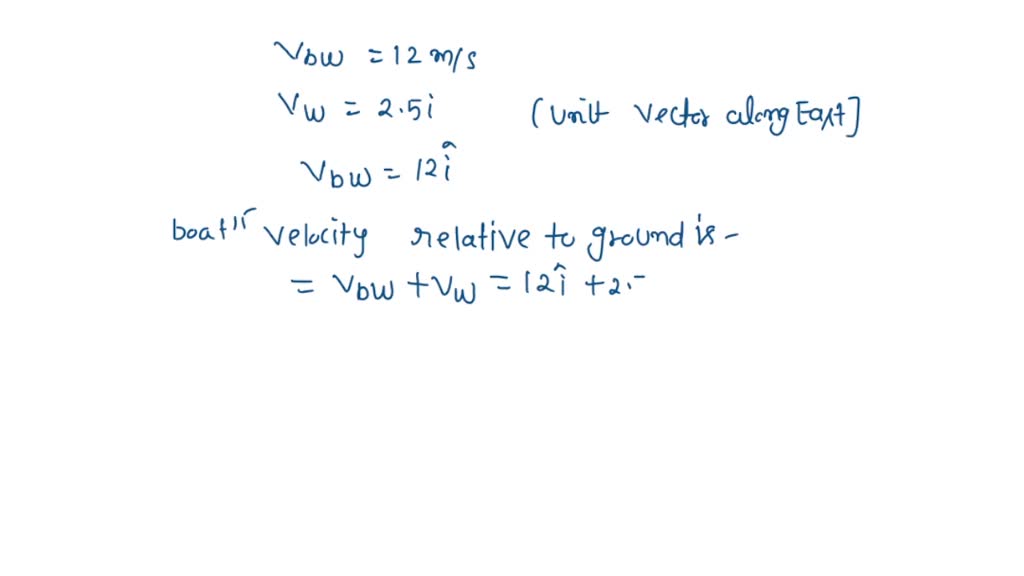 Vbw = 12 m/s
Vw = 2.5i (Unit Vector along East]
Vbw = 12î
boat's velocity relative to ground is -
= Vbw + Vw = 12î + 2.